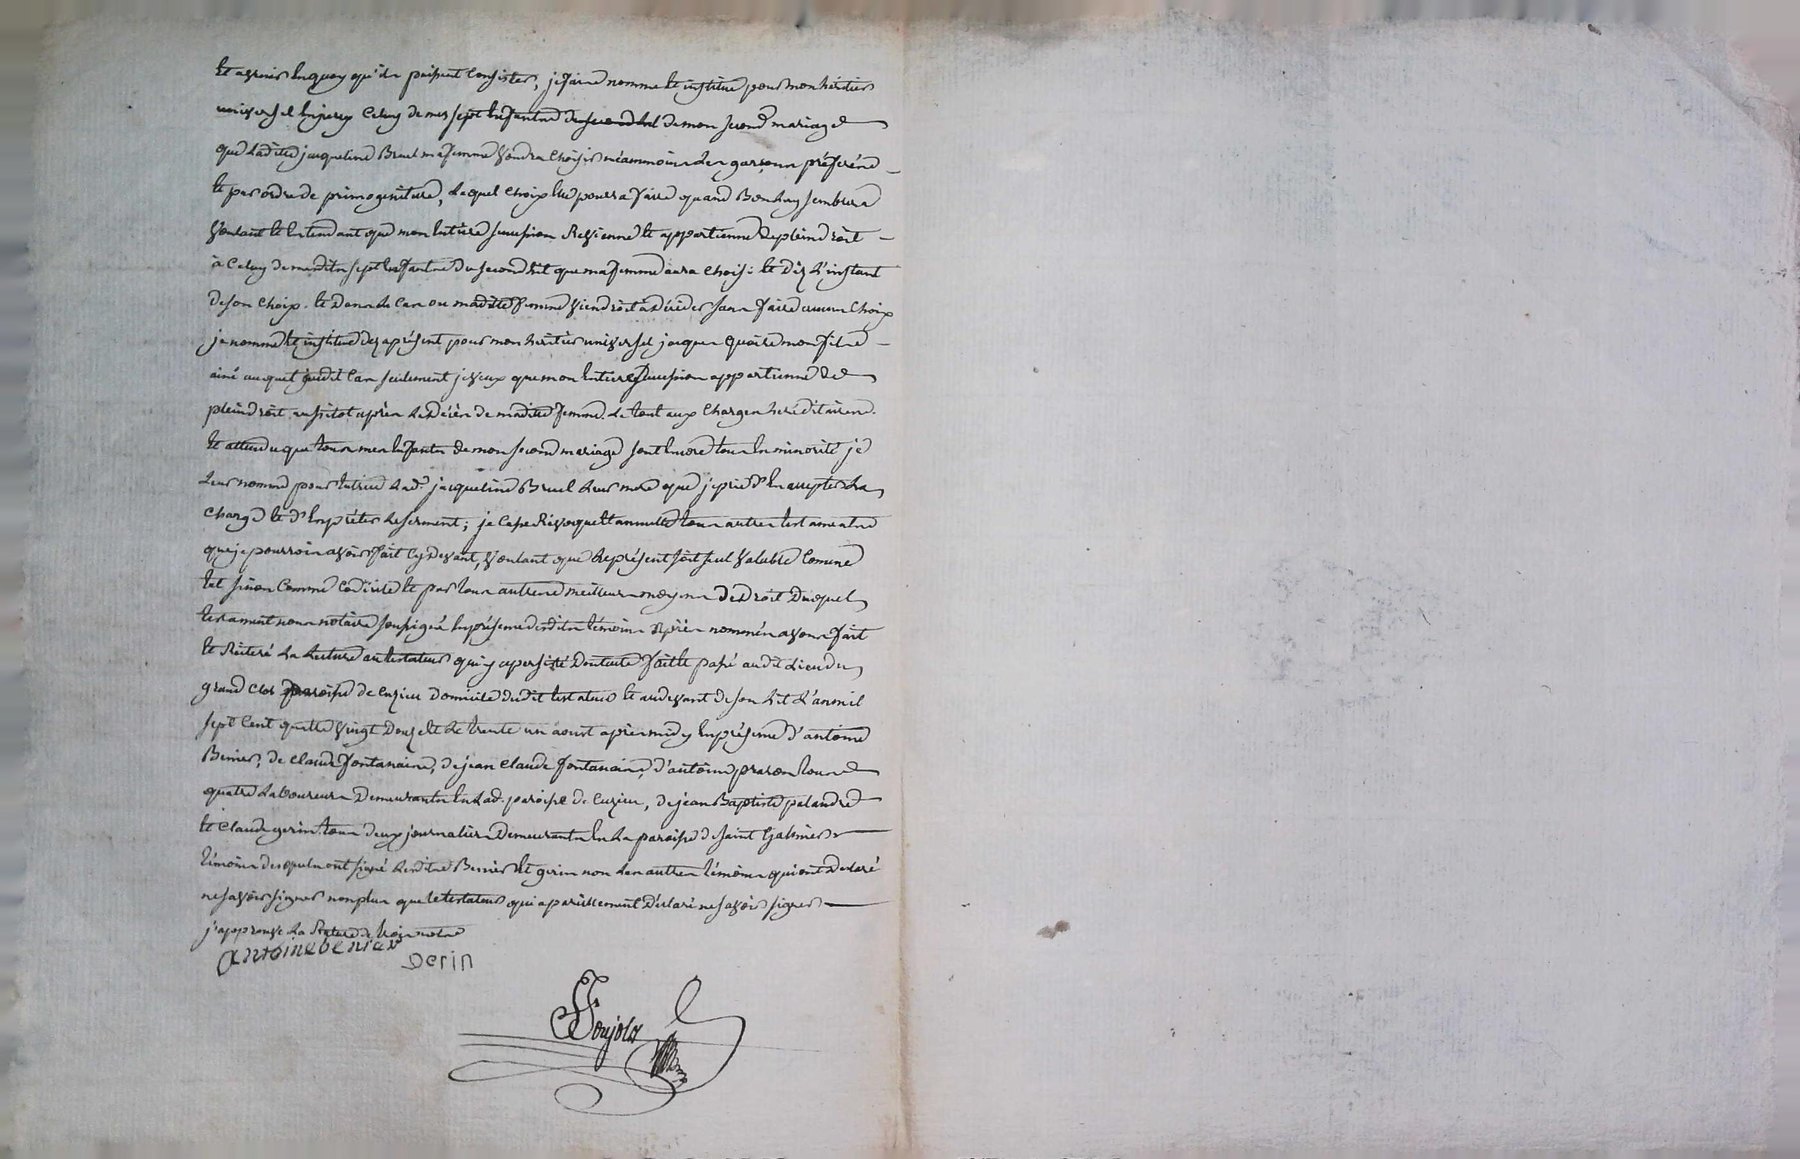 et avoirs en quoy qu'ils puissent consister, je faire nomme et institue pour mon héritier
universel en jceux celuy de mes sept enfants du second lit de mon second mariage
que ladite jacqueline Bruel ma femme voudra choisir néammoins les garçons préférés
et par ordre de primogeniture, lequel choix elle pourra faire quand Bon luy semblera
voulant et entendant que mon entiere succession Revienne et appartienne de plein droit
à celuy de mesdits sept enfants du second lit que ma femme aura choisi et dès l'instant
de son choix. et dans le cas ou madite femme viendroit à décéder sans faire aucun choix
je nomme et institue dez aprésent pour mon héritier universel jacques mon fils
ainé auquel audit cas seulement je veux que mon entiere succession appartienne de
plein droit aussitot après le décès de madite femme. le tout aux charges héréditaires.
et attendu que tous mes enfants de mon second mariage sont encore tous en minorité je
leur nomme pour tutrice lad.e jacqueline Bruel leur mere que je prie d'en accepter la
charge et d'en prêter le serment; je casse Révoque et annulle tous autres testaments
que je pourrois avoir fait cy devant, voulant que le présent soit seul valable comme
tel sinon comme codicile et par tous autres meilleurs moyens de Droit Duquel
testament nous notaire soussigné en présence desdits témoins après nommés avons fait
et Réiteré la lecture au testateur qui y a persisté Dont acte fait et passé audit lieu du
grand clos paroisse de Cuzieu domicile dudit testateur et au devant de son lit l'an mil
sept cent quatre vingt Douze et le trente un aoust après midy en présence d'antoine
Benier, de claude fontanaire, de jean claude fontanaire, d'antoine tous
quatre laboureurs Demeurants en lad. paroisse de Cuzieu, de jean Baptiste palandre
et Claude gerin tous deux journaliers Demeurants en la paroisse de saint Galmier
témoins desquels ont signé lesdits Benier et gerin non les autres témoins qui ont declaré
ne savoir signer non plus que le testateur qui a pareillement déclaré ne savoir signer
j'approuve la Rature de trois mots
antoine benier
Gerin
Soujols